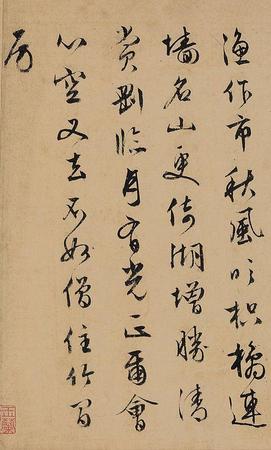 漁作市秋風吹枳橘連
墻名山更倚湖增勝清
賞剛臨月有光正爾會
心空又去不如僧住竹間
房